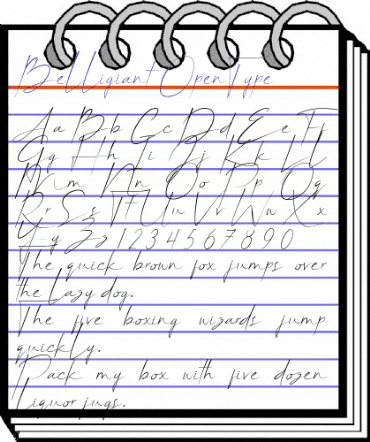 Belligiant OpenType
A a B b C c D d E e F f
G g H h I i J j K k L l
M m N n O o P p Q q
R r S s T t U u V v W w X x
Y y Z z 1 2 3 4 5 6 7 8 9 0
The quick brown fox jumps over
the lazy dog.
The five boxing wizards jump
quickly.
Pack my box with five dozen
liquor jugs.